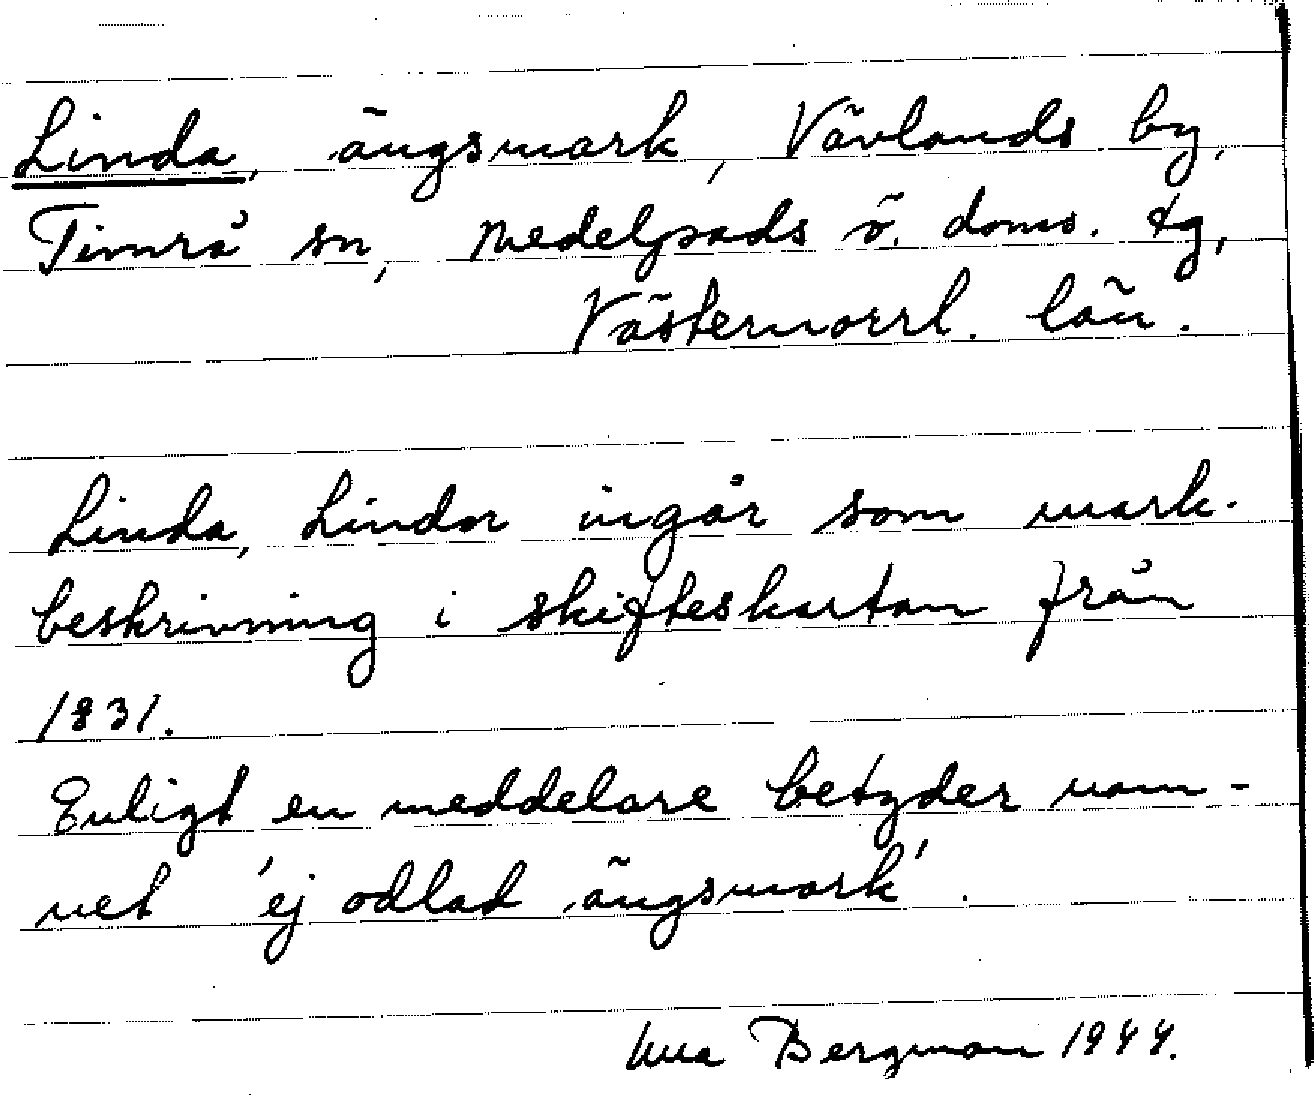 Linda, ängsmark, Vävlands by,
Timrå sn, Medelpads ö. doms. tg,
Västernorrl. län.
Linda, Lindor ingår som mark-
beskrivning i skifteskartan från
1831.
Enligt en meddelare betyder nam-
net 'ej odlad ängsmark'.
Bergman 1944.